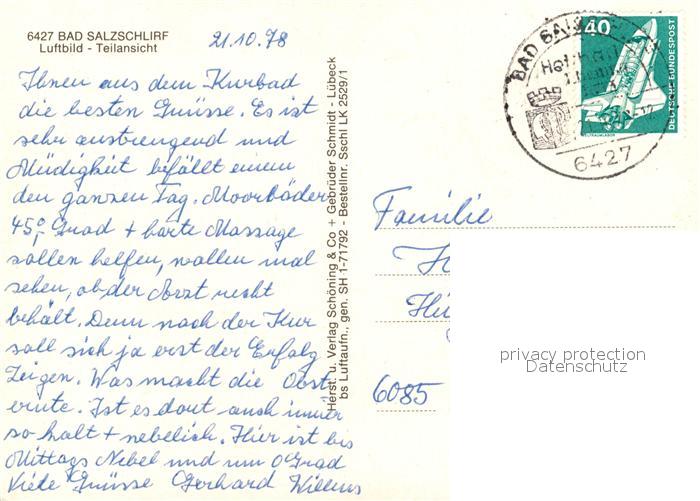 6427 BAD SALZSCHLIRF
Luftbild - Teilansicht
21.10.78
Ihnen aus dem Kurbad
die besten Grüsse. Es ist
sehr anstrengend und
Müdigkeit befällt einem
den ganzen Tag. Moorbäder
45,° Grad + harte Massage
sollen helfen, wollen mal
sehen, ob der Arzt recht
behält. Denn nach der Kur
soll sich ja erst der Erfolg
zeigen. Was macht die Obst
ernte. Ist es dort auch immer
so kalt + nebelich. Hier ist bis
Mittags Nebel und um 0 Grad
Viele Grüsse Gerhard Willems
Herst. u. Verlag Schöning & Co + Gebrüder Schmidt - Lübeck
bs Luftaufn., gen. SH 1-71792 - Bestellnr. Sschl LK 2529/1
BAD
6427
40
DEUTSCHE BUNDESPOST
Familie
6085
privacy protection
Datenschutz